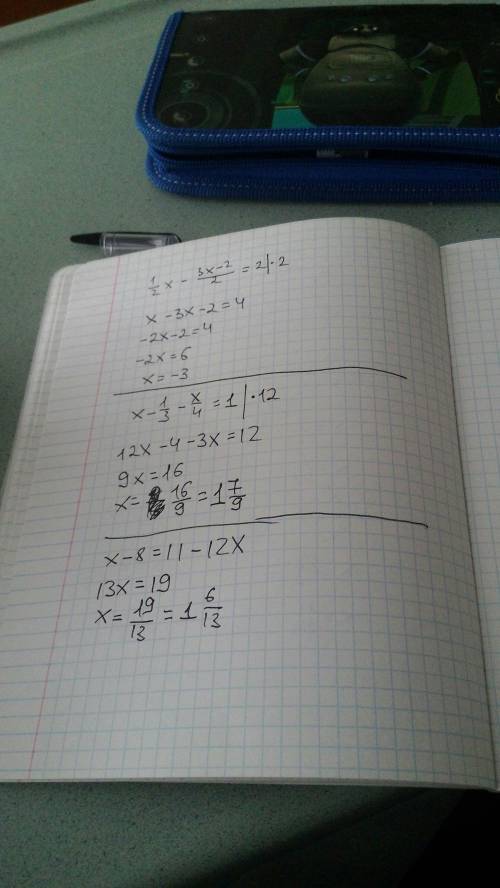 1/2 x - 3x-2/2 = 2 |·2
x - 3x - 2 = 4
-2x - 2 = 4
-2x = 6
x = -3
x - 1/3 - x/4 = 1 | ·12
12x - 4 - 3x = 12
9x = 16
x = 16/9 = 1 7/9
x - 8 = 11 - 12x
13x = 19
x = 19/13 = 1 6/13